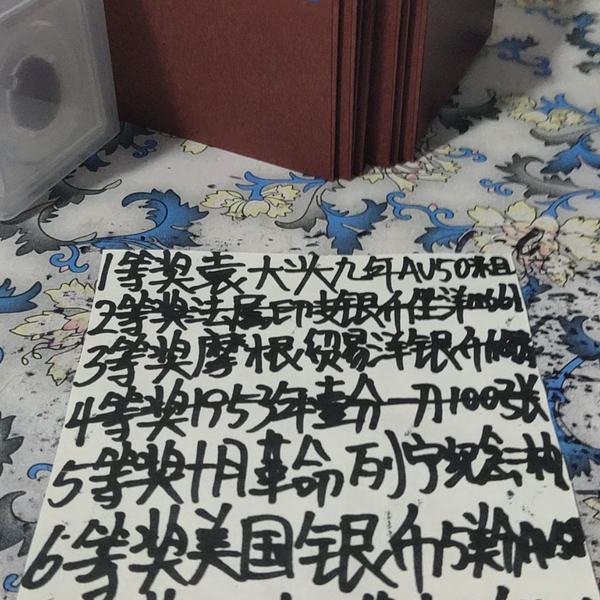 1等奖袁大头九年AU50粗
2等奖法属印支银币坐洋
3等奖摩根贸易洋银币
4等奖1953年壹分一刀100张
5等奖十月革命列宁
6等奖美国银币5